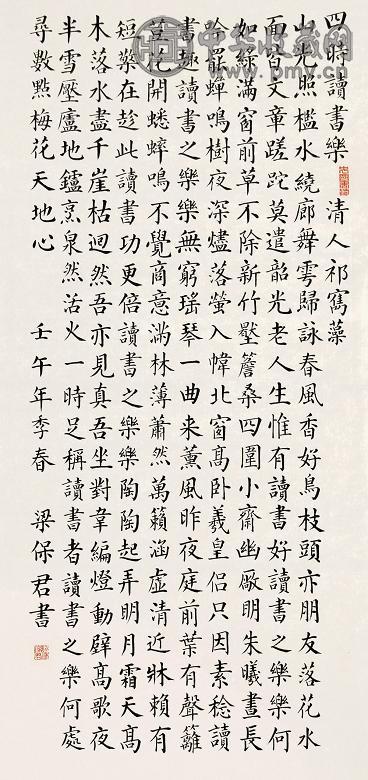 四時讀書樂 清人祁寯藻
山光照檻水繞廊舞雩歸詠春風香好鳥枝頭亦朋友落花水
面皆文章蹉跎莫遣韶光老人生惟有讀書好讀書之樂樂何
如綠滿窗前草不除新竹壓簷桑四圍小齋幽敞明朱曦晝長
吟罷蟬鳴樹夜深燼落螢入幃北窗高卧羲皇侶只因素稔讀
書趣讀書之樂樂無窮瑤琴一曲來薰風昨夜庭前葉有聲籬
荳花開蟋蟀鳴不覺商意滿林薄蕭然萬籟涵虛清近牀賴有
短檠在趁此讀書功更倍讀書之樂樂陶陶起弄明月霜天髙
木落水盡千崖枯迥然吾亦見真吾坐對韋編燈動壁髙歌夜
半雪壓廬地鑪烹泉然活火一時足稱讀書者讀書之樂何處
尋數點梅花天地心 壬午年季春 梁保君書
中华收藏网